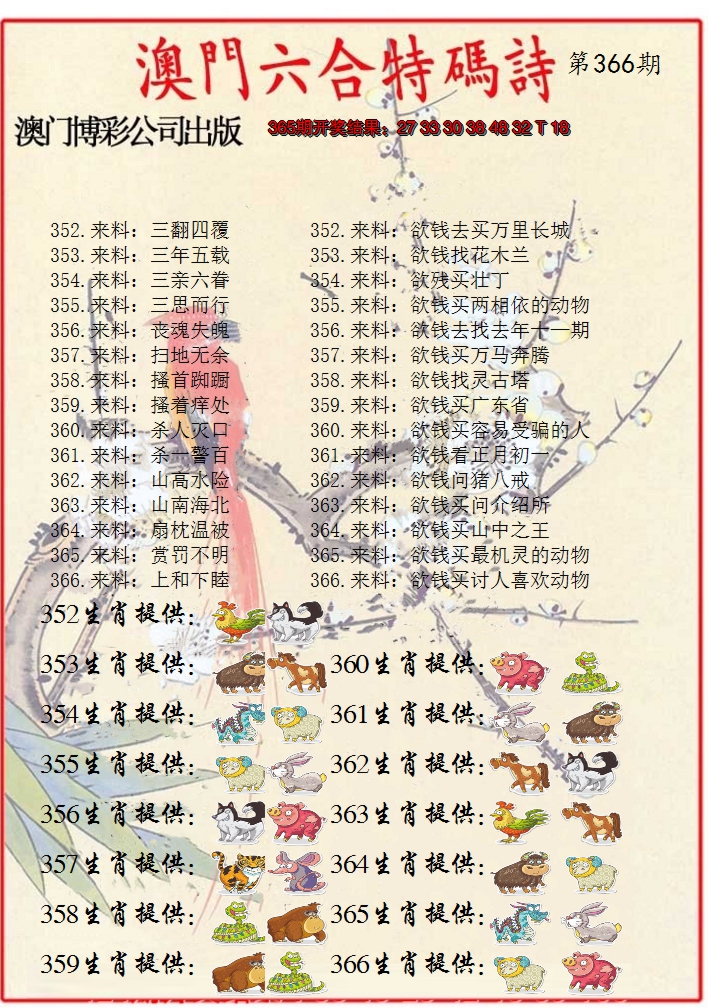 澳門六合特碼詩 第366期
澳门博彩公司出版 365期开奖结果：27 33 30 38 48 32 T 18
352.来料：三翻四覆 352.来料：欲钱去买万里长城
353.来料：三年五载 353.来料：欲钱找花木兰
354.来料：三亲六眷 354.来料：欲残买壮丁
355.来料：三思而行 355.来料：欲钱买两相依的动物
356.来料：丧魂失魄 356.来料：欲钱去找去年十一期
357.来料：扫地无余 357.来料：欲钱买万马奔腾
358.来料：搔首踟蹰 358.来料：欲钱找灵古塔
359.来料：搔着痒处 359.来料：欲钱买广东省
360.来料：杀人灭口 360.来料：欲钱买容易受骗的人
361.来料：杀一警百 361.来料：欲钱看正月初一
362.来料：山高水险 362.来料：欲钱问猪八戒
363.来料：山南海北 363.来料：欲钱买问介绍所
364.来料：扇枕温被 364.来料：欲钱买山中之王
365.来料：赏罚不明 365.来料：欲钱买最机灵的动物
366.来料：上和下睦 366.来料：欲钱买讨人喜欢动物
352生肖提供：
353生肖提供： 360生肖提供：
354生肖提供： 361生肖提供：
355生肖提供： 362生肖提供：
356生肖提供： 363生肖提供：
357生肖提供： 364生肖提供：
358生肖提供： 365生肖提供：
359生肖提供： 366生肖提供：